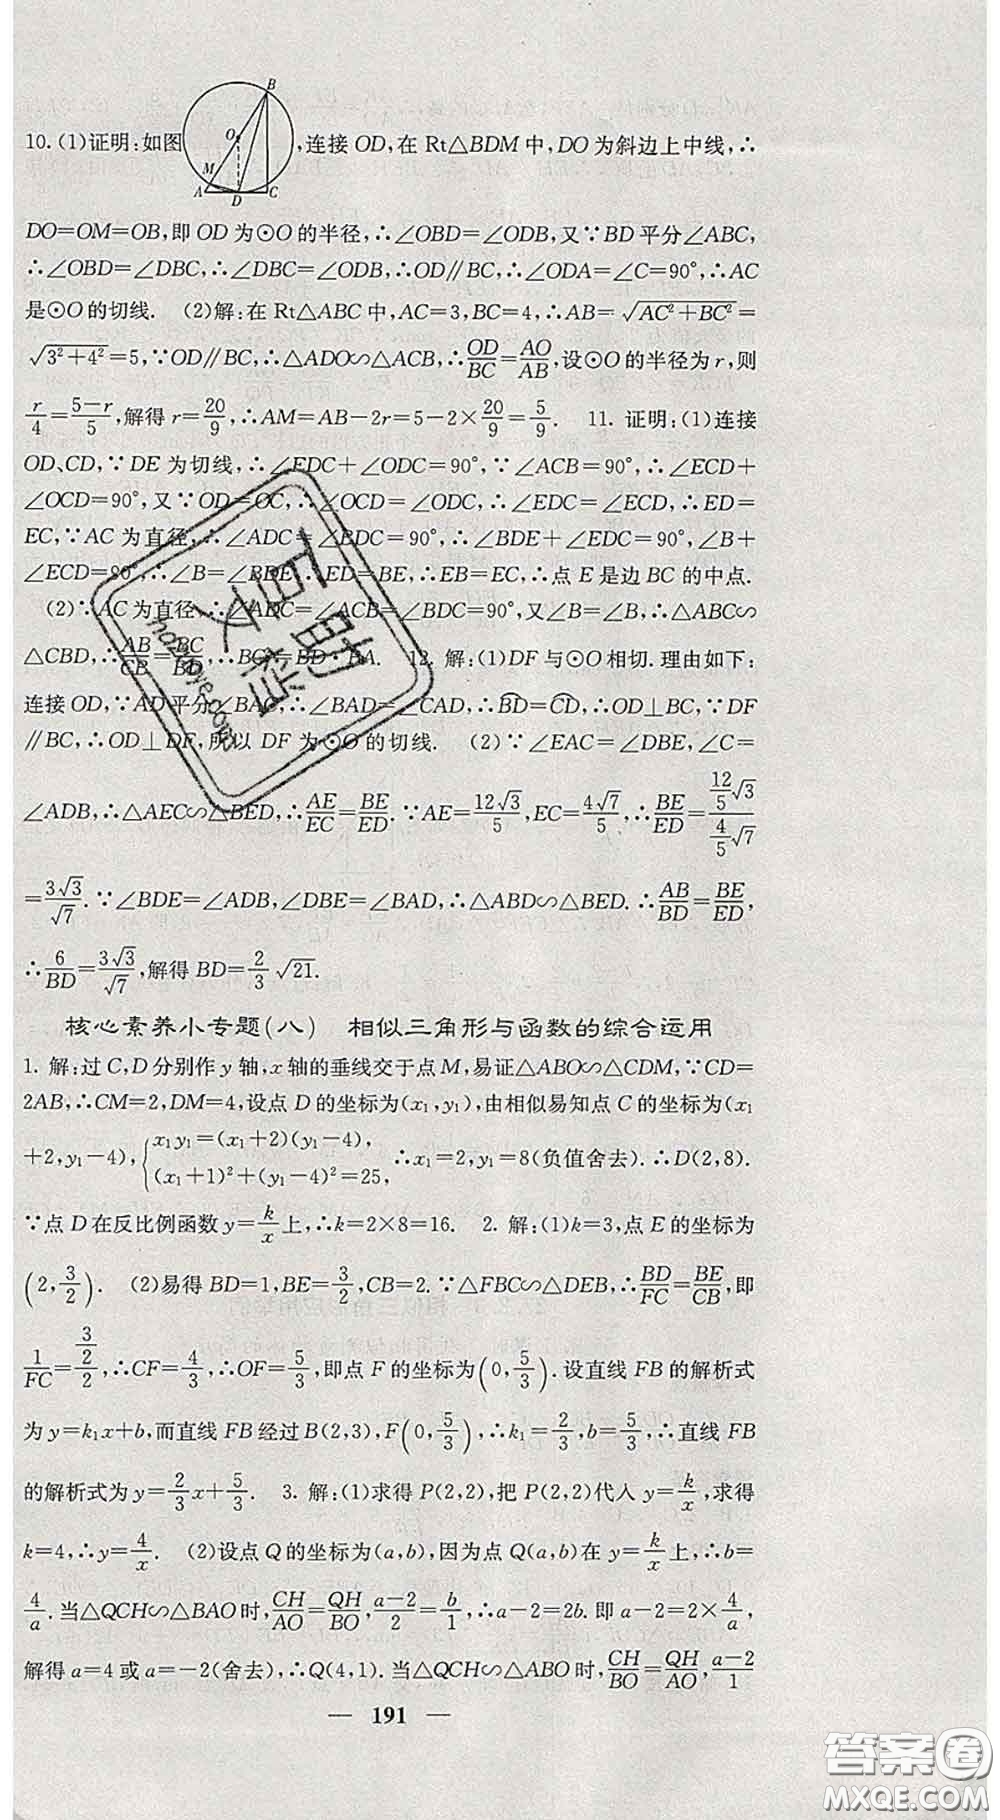 B
O
M
A D C
10. (1)证明:如图 ,连接 OD,在 Rt△BDM 中,DO 为斜边上中线,∴
DO=OM=OB,即 OD 为⊙O 的半径,∴∠OBD=∠ODB,又∵BD 平分∠ABC,
∴∠OBD=∠DBC,∴∠DBC=∠ODB,∴OD∥BC,∴∠ODA=∠C=90°,∴AC
是⊙O 的切线. (2)解:在 Rt△ABC 中,AC=3,BC=4,∴AB=√(AC²+BC²)=
√(3²+4²)=5,∵OD∥BC,∴△ADO∽△ACB,∴OD/BC=AO/AB,设⊙O 的半径为 r,则
r/4=(5-r)/5,解得 r=20/9,∴AM=AB-2r=5-2×20/9=5/9. 11. 证明:(1)连接
OD、CD,∵DE 为切线,∴∠EDC+∠ODC=90°,∵∠ACB=90°,∴∠ECD+
∠OCD=90°,又∵OD=OC,∴∠OCD=∠ODC,∴∠EDC=∠ECD,∴ED=
EC,∵AC 为直径,∴∠ADC=∠BDC=90°,∴∠BDE+∠EDC=90°,∠B+
∠ECD=90°,∴∠B=∠BDE,∴ED=BE,∴EB=EC,∴点 E 是边 BC 的中点.
(2)∵AC 为直径,∴∠ADC=∠ACB=∠BDC=90°,又∠B=∠B,∴△ABC∽
△CBD,∴AB/CB=BC/BD,∴BC²=BD·BA. 12. 解:(1)DF 与⊙O 相切.理由如下:
连接 OD,∵AD 平分∠BAC,∴∠BAD=∠CAD,∴B͡D=C͡D,∴OD⊥BC,∵DF
∥BC,∴OD⊥DF,所以 DF 为⊙O 的切线. (2)∵∠EAC=∠DBE,∠C=
∠ADB,∴△AEC∽△BED,∴AE/EC=BE/ED.∵AE=12√3/5,EC=4√7/5,∴BE/ED=(12/5√3)/(4/5√7)
=3√3/√7.∵∠BDE=∠ADB,∠DBE=∠BAD,∴△ABD∽△BED.∴AB/BD=BE/ED,
∴6/BD=3√3/√7,解得 BD=2/3 √21.
核心素养小专题(八) 相似三角形与函数的综合运用
1. 解:过 C,D 分别作 y 轴,x 轴的垂线交于点 M,易证△ABO∽△CDM,∵CD=
2AB,∴CM=2,DM=4,设点 D 的坐标为(x₁,y₁),由相似易知点 C 的坐标为(x₁
+2,y₁-4),{x₁y₁=(x₁+2)(y₁-4), (x₁+1)²+(y₁-4)²=25, ∴x₁=2,y₁=8(负值舍去).∴D(2,8).
∵点 D 在反比例函数 y=k/x上,∴k=2×8=16. 2. 解:(1)k=3,点 E 的坐标为
(2,3/2). (2)易得 BD=1,BE=3/2,CB=2.∵△FBC∽△DEB,∴BD/FC=BE/CB,即
1/FC=(3/2)/2,∴CF=4/3,∴OF=5/3,即点 F 的坐标为(0,5/3).设直线 FB 的解析式
为 y=k₁x+b,而直线 FB 经过 B(2,3),F(0,5/3),∴k₁=2/3,b=5/3,∴直线 FB
的解析式为 y=2/3x+5/3. 3. 解:(1)求得 P(2,2),把 P(2,2)代入 y=k/x,求得
k=4,∴y=4/x. (2)设点 Q 的坐标为(a,b),因为点 Q(a,b)在 y=k/x上,∴b=
4/a.当△QCH∽△BAO 时,CH/AO=QH/BO,(a-2)/2=b/1,∴a-2=2b.即 a-2=2×4/a,
解得 a=4 或 a=-2(舍去),∴Q(4,1).当△QCH∽△ABO 时,CH/BO=QH/AO,(a-2)/1
— 191 —
答案圈
MXQE.COM